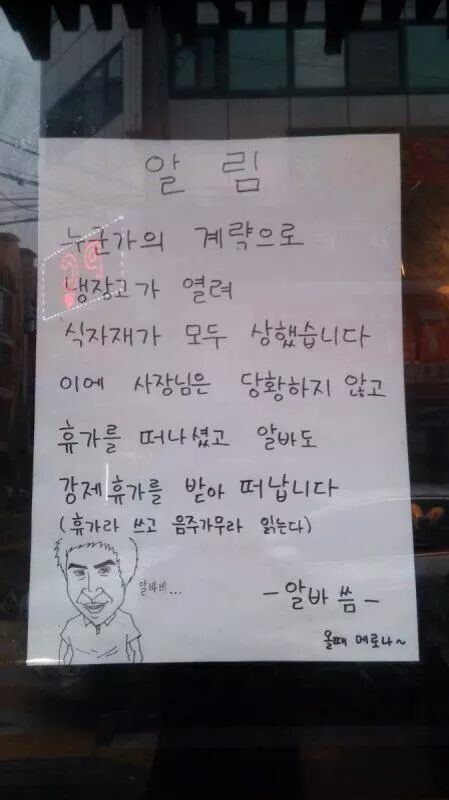 알림
누군가의 계략으로
냉장고가 열려
식자재가 모두 상했습니다
이에 사장님은 당황하지 않고
휴가를 떠나셨고 알바도
강제휴가를 받아 떠납니다
(휴가라 쓰고 음주가무라 읽는다)
알바비...
-알바 씀-
올때 메로나~